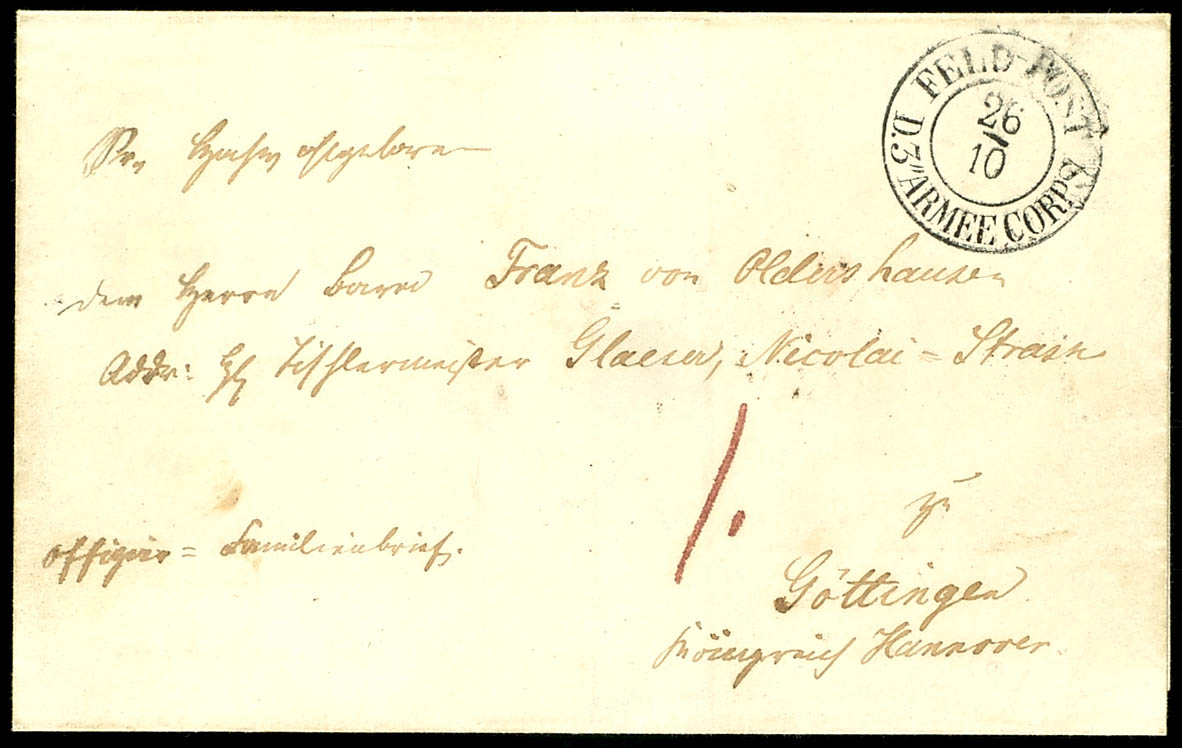 FELD-POST
26
10
D. 3n ARMEE CORPS
Sr. Hochwohlgeboren
dem Herrn Baron Franz von Oldershausen
Addr: Tischlermeister Glaeser, Nicolai = Strasse
1.
zu
Offizier = Familienbrief.
Göttingen
Königreich Hannover.